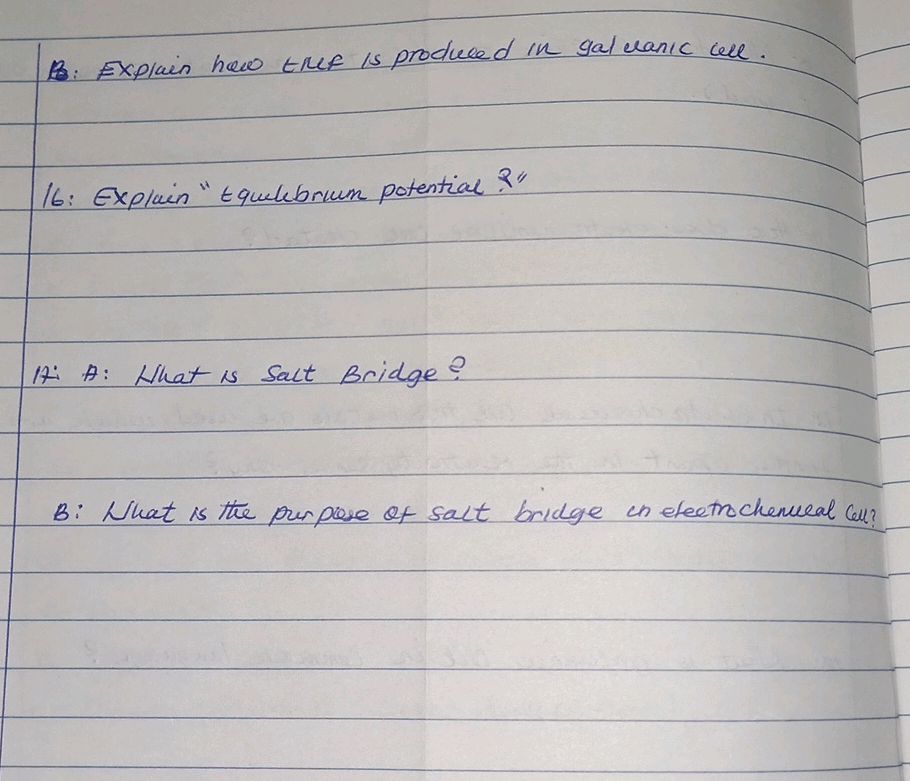 B: Explain how EMF is produced in galvanic cell.
16: Explain "Equilibrium potential?"
17: A: What is Salt Bridge?
B: What is the purpose of salt bridge in electrochemical Cell?